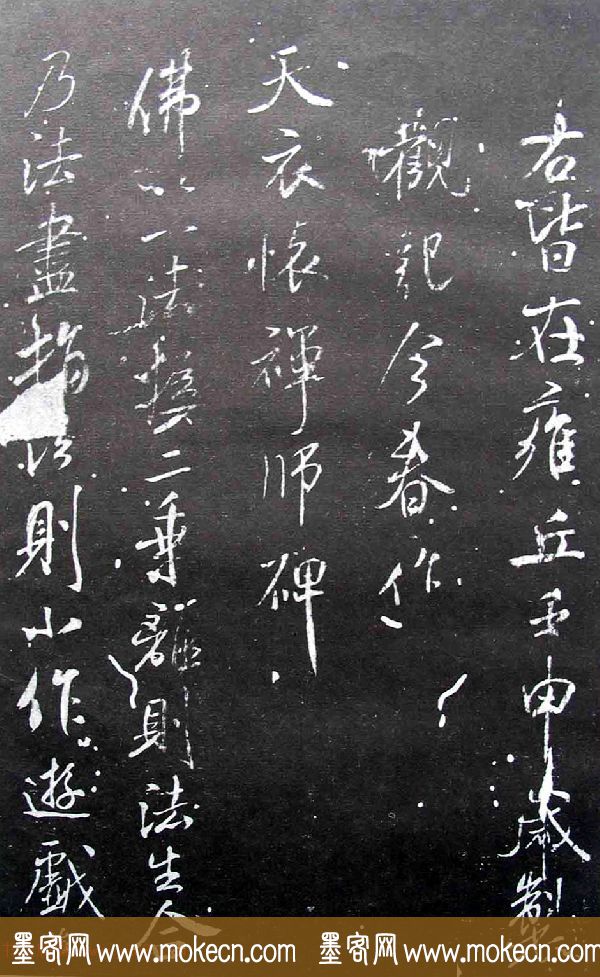 右皆在雍丘壬申歲製
觀記今春作
天衣懷禪師碑
佛以一法二乘離則法生合
乃法盡則小作遊戲
墨客网 www.mokecn.com 墨客网 www.mokecn.com